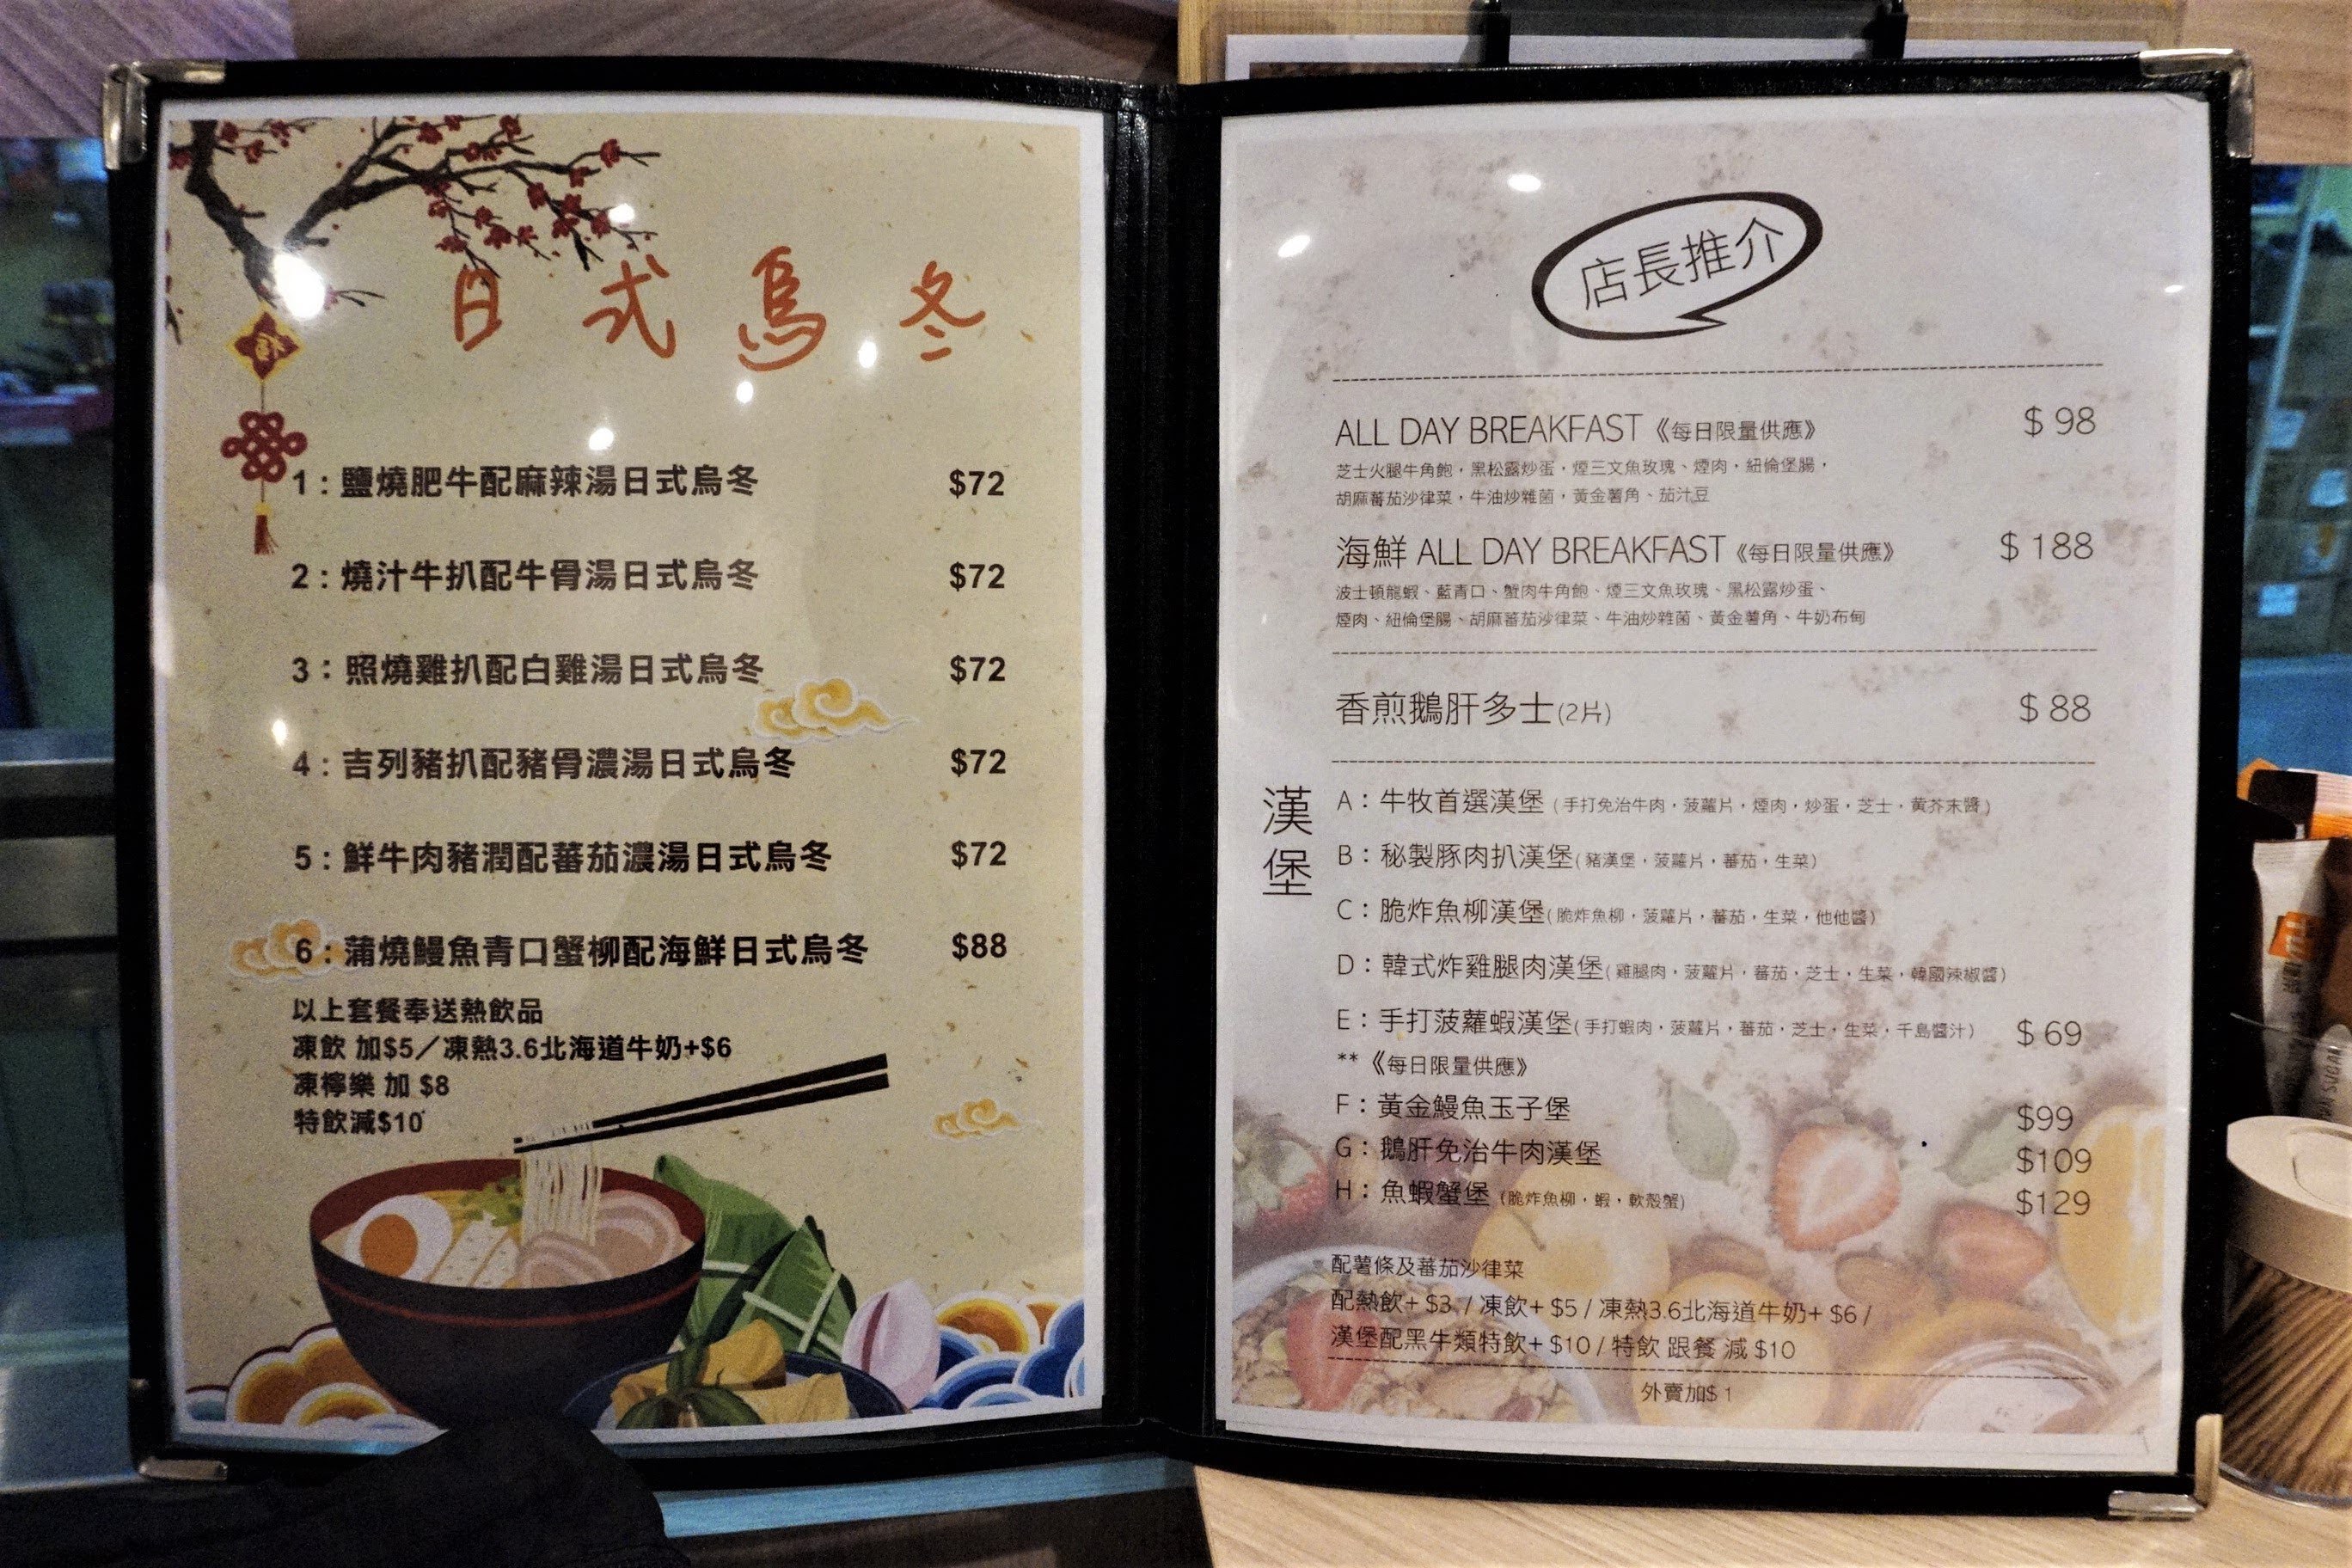 日式烏冬
1：鹽燒肥牛配麻辣湯日式烏冬 $72
2：燒汁牛扒配牛骨湯日式烏冬 $72
3：照燒雞扒配白雞湯日式烏冬 $72
4：吉列豬扒配豬骨濃湯日式烏冬 $72
5：鮮牛肉豬潤配蕃茄濃湯日式烏冬 $72
6：蒲燒鰻魚青口蟹柳配海鮮日式烏冬 $88
以上套餐奉送熱飲品
凍飲 加$5／凍熱3.6北海道牛奶+$6
凍檸樂 加 $8
特飲減$10
店長推介
ALL DAY BREAKFAST《每日限量供應》 $ 98
芝士火腿牛角飽，黑松露炒蛋，煙三文魚玫瑰、煙肉，紐倫堡腸，
胡麻蕃茄沙律菜，牛油炒雜菌，黃金薯角、茄汁豆
海鮮 ALL DAY BREAKFAST《每日限量供應》 $ 188
波士頓龍蝦、藍青口、蟹肉牛角飽、煙三文魚玫瑰、黑松露炒蛋、
煙肉、紐倫堡腸、胡麻蕃茄沙律菜、牛油炒雜菌、黃金薯角、牛奶布甸
香煎鵝肝多士(2片) $ 88
漢堡
A：牛牧首選漢堡 (手打免治牛肉，菠蘿片，煙肉，炒蛋，芝士，黄芥末醬)
B：秘製豚肉扒漢堡(豬漢堡，菠蘿片，蕃茄，生菜)
C：脆炸魚柳漢堡(脆炸魚柳，菠蘿片，蕃茄，生菜，他他醬)
D：韓式炸雞腿肉漢堡(雞腿肉，菠蘿片，蕃茄，芝士，生菜，韓國辣椒醬)
E：手打菠蘿蝦漢堡(手打蝦肉，菠蘿片，蕃茄，芝士，生菜，千島醬汁) $ 69
**《每日限量供應》
F：黃金鰻魚玉子堡 $99
G：鵝肝免治牛肉漢堡 $109
H：魚蝦蟹堡 (脆炸魚柳，蝦，軟殼蟹) $129
配薯條及蕃茄沙律菜
配熱飲+ $3 / 凍飲+ $5 / 凍熱3.6北海道牛奶+ $6 /
漢堡配黑牛類特飲+ $10 / 特飲 跟餐 減 $10
外賣加$ 1